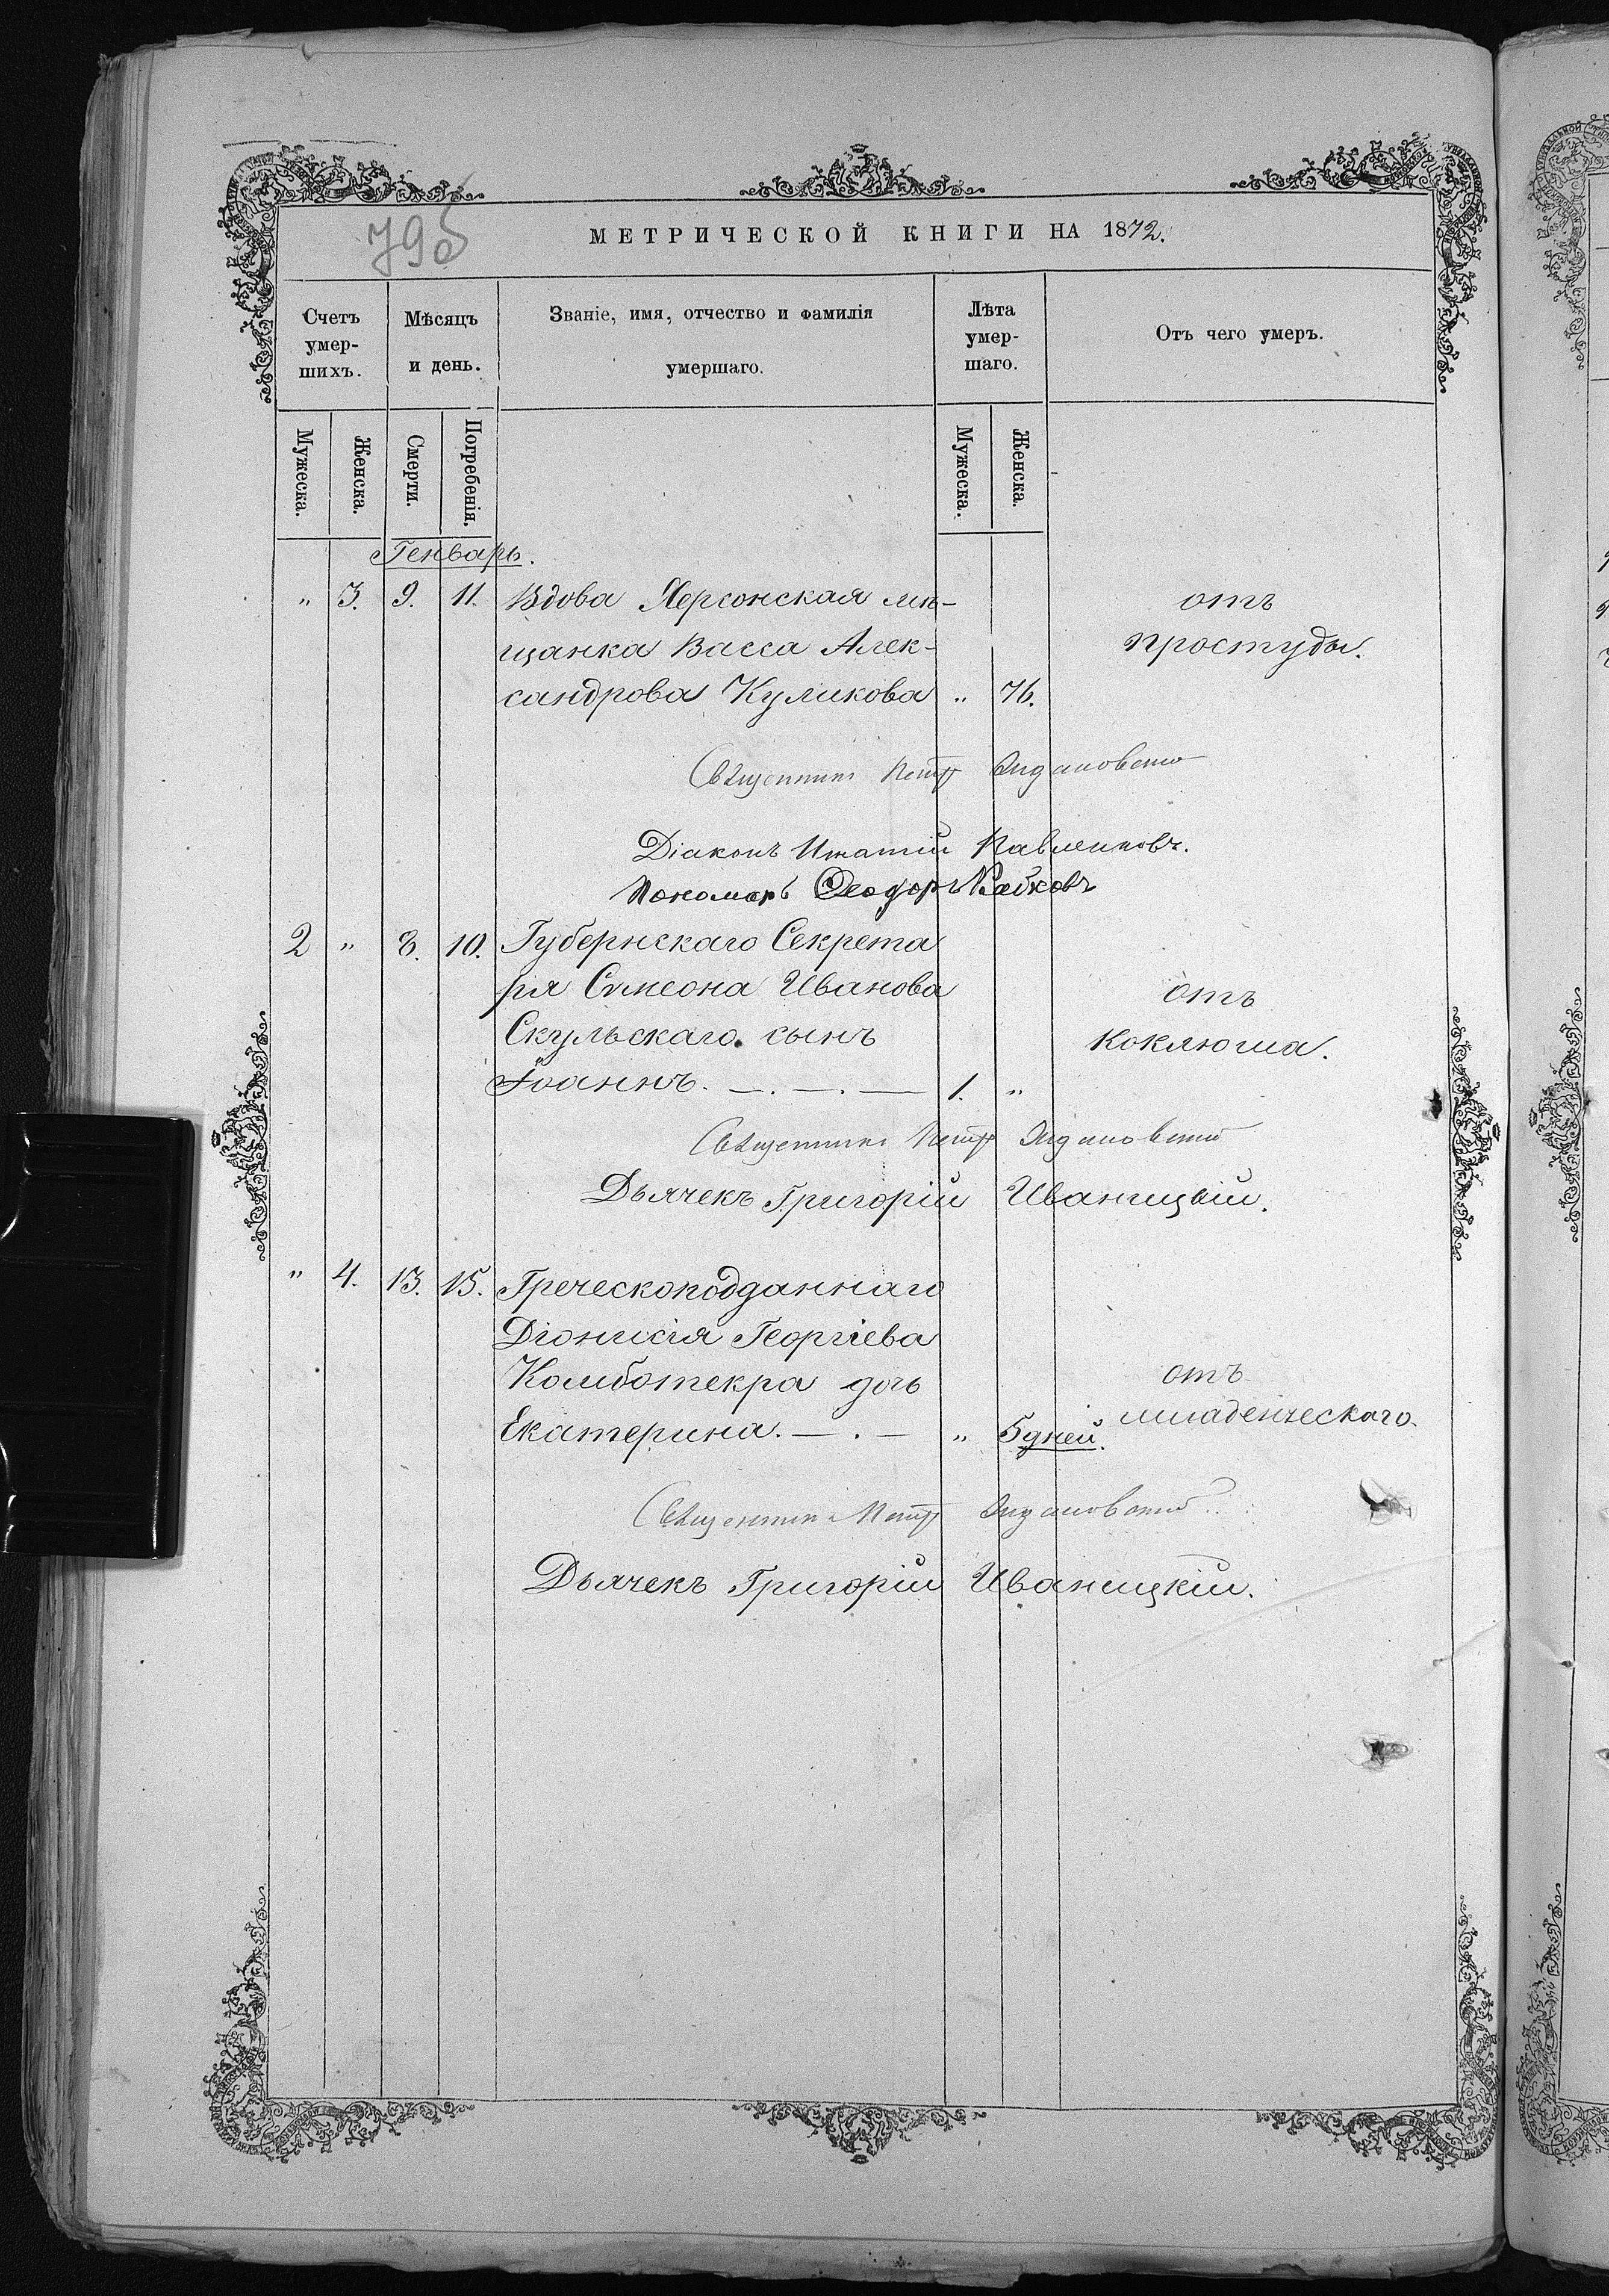 79б
МЕТРИЧЕСКОЙ КНИГИ НА 1872.
Счетъ умер-шихъ.
Мѣсяцъ и день.
Званіе, имя, отчество и фамилія умершаго.
Лѣта умер-шаго.
Отъ чего умеръ.
Мужеска.
Женска.
Смерти.
Погребенія.
Мужеска.
Женска.
Генварь.
" 3. 9. 11. Вдова Херсонская мѣ- отъ
щанка Васса Алек- простуды.
сандрова Куликова " 76.
Священникъ Петръ
Діаконъ Игнатій Павленковъ.
Пономарь Ѳеодоръ
2 " 8. 10. Губернскаго Секрета
ря Симеона Иванова отъ
Скульскаго сынъ коклюша.
Іоаннъ. 1. "
Священникъ Петръ
Дьячекъ Григорій Иваницкій.
" 4. 13. 15. Греческоподданнаго
Діонисія Георгіева
Комботекра дочь отъ
Екатерина. " 5 дней. младенческаго.
Священникъ Петръ
Дьячекъ Григорій Иваницкій.